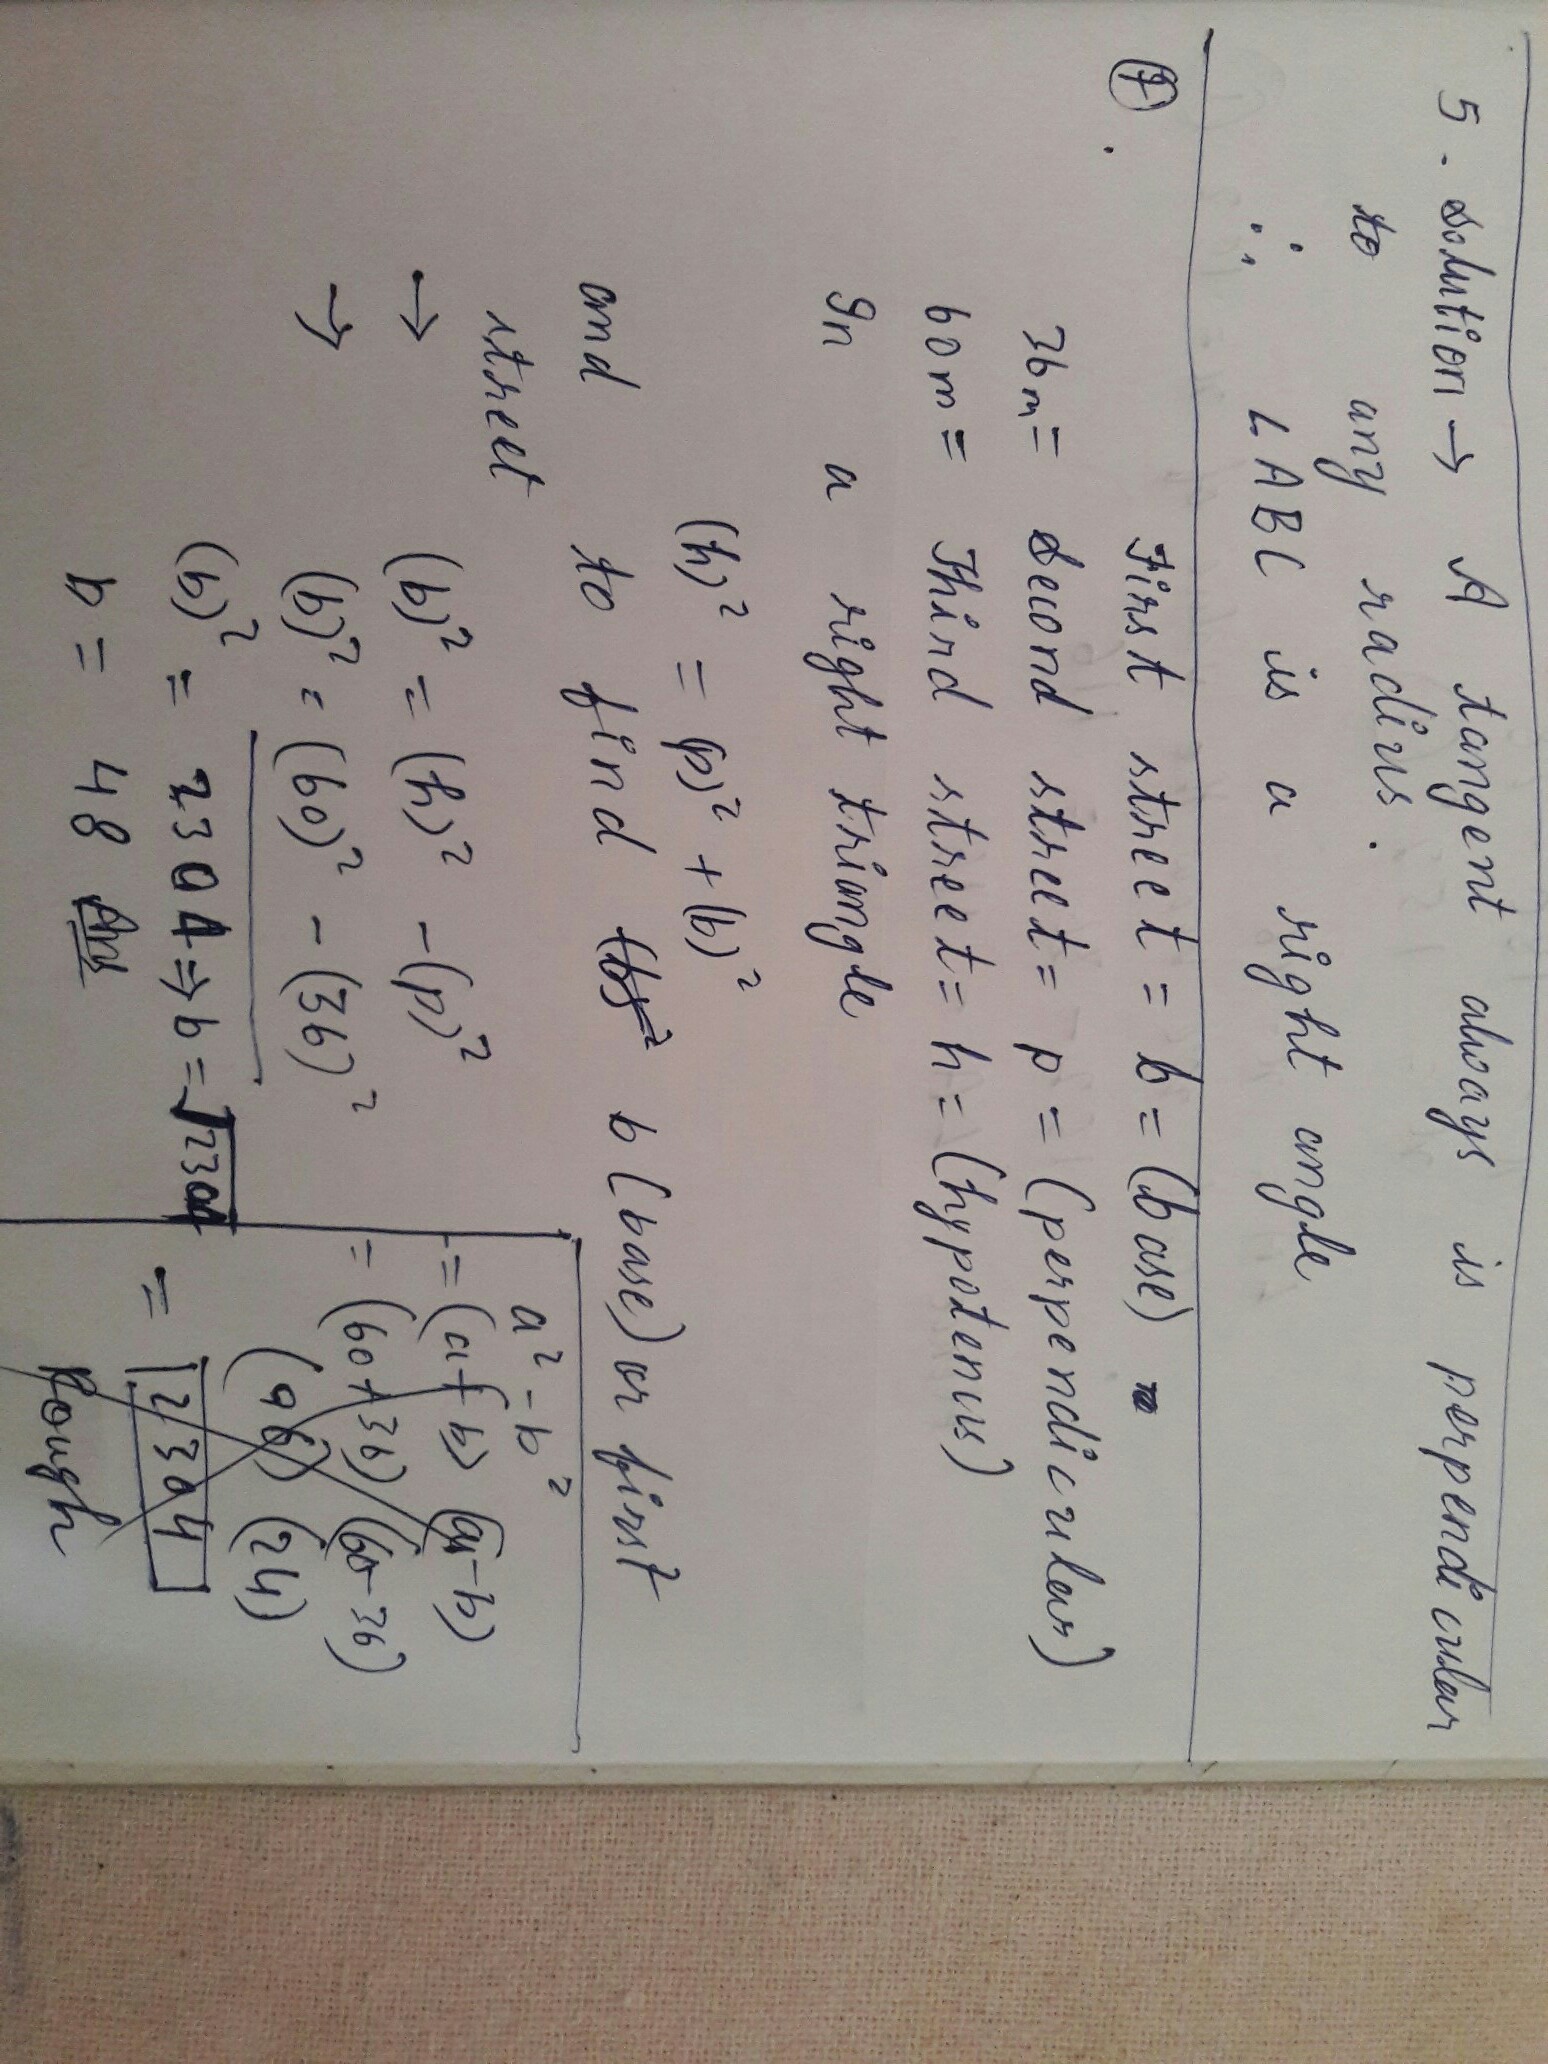 5. Solution → A tangent always is perpendicular
to any radius.
∴ ∠ABC is a right angle
7.
First street = b = (base)
36m = Second street = p = (perpendicular)
60m = Third street = h = (hypotenus)
In a right triangle
(h)² = (p)² + (b)²
and to find b (base) or first
street
→ (b)² = (h)² - (p)²
→ (b)² = (60)² - (36)²
(b)² = 2304 ⇒ b = √2304
b = 48 Ans
a² - b²
= (a+b) (a-b)
= (60+36) (60-36)
(96) (24)
= 2304
Rough